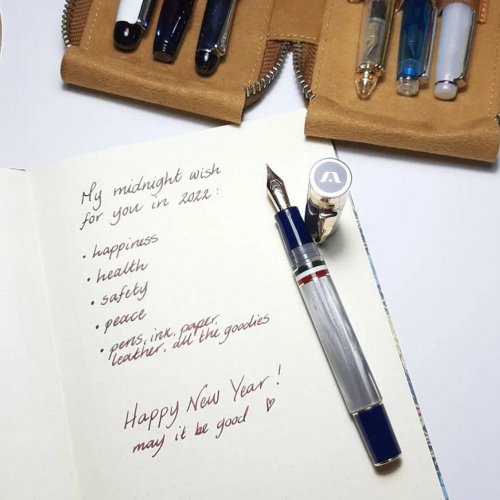 My midnight wish
for you in 2022:
• happiness
• health
• safety
• peace
• pens, ink, paper,
leather, all the goodies
Happy New Year!
may it be good ♡